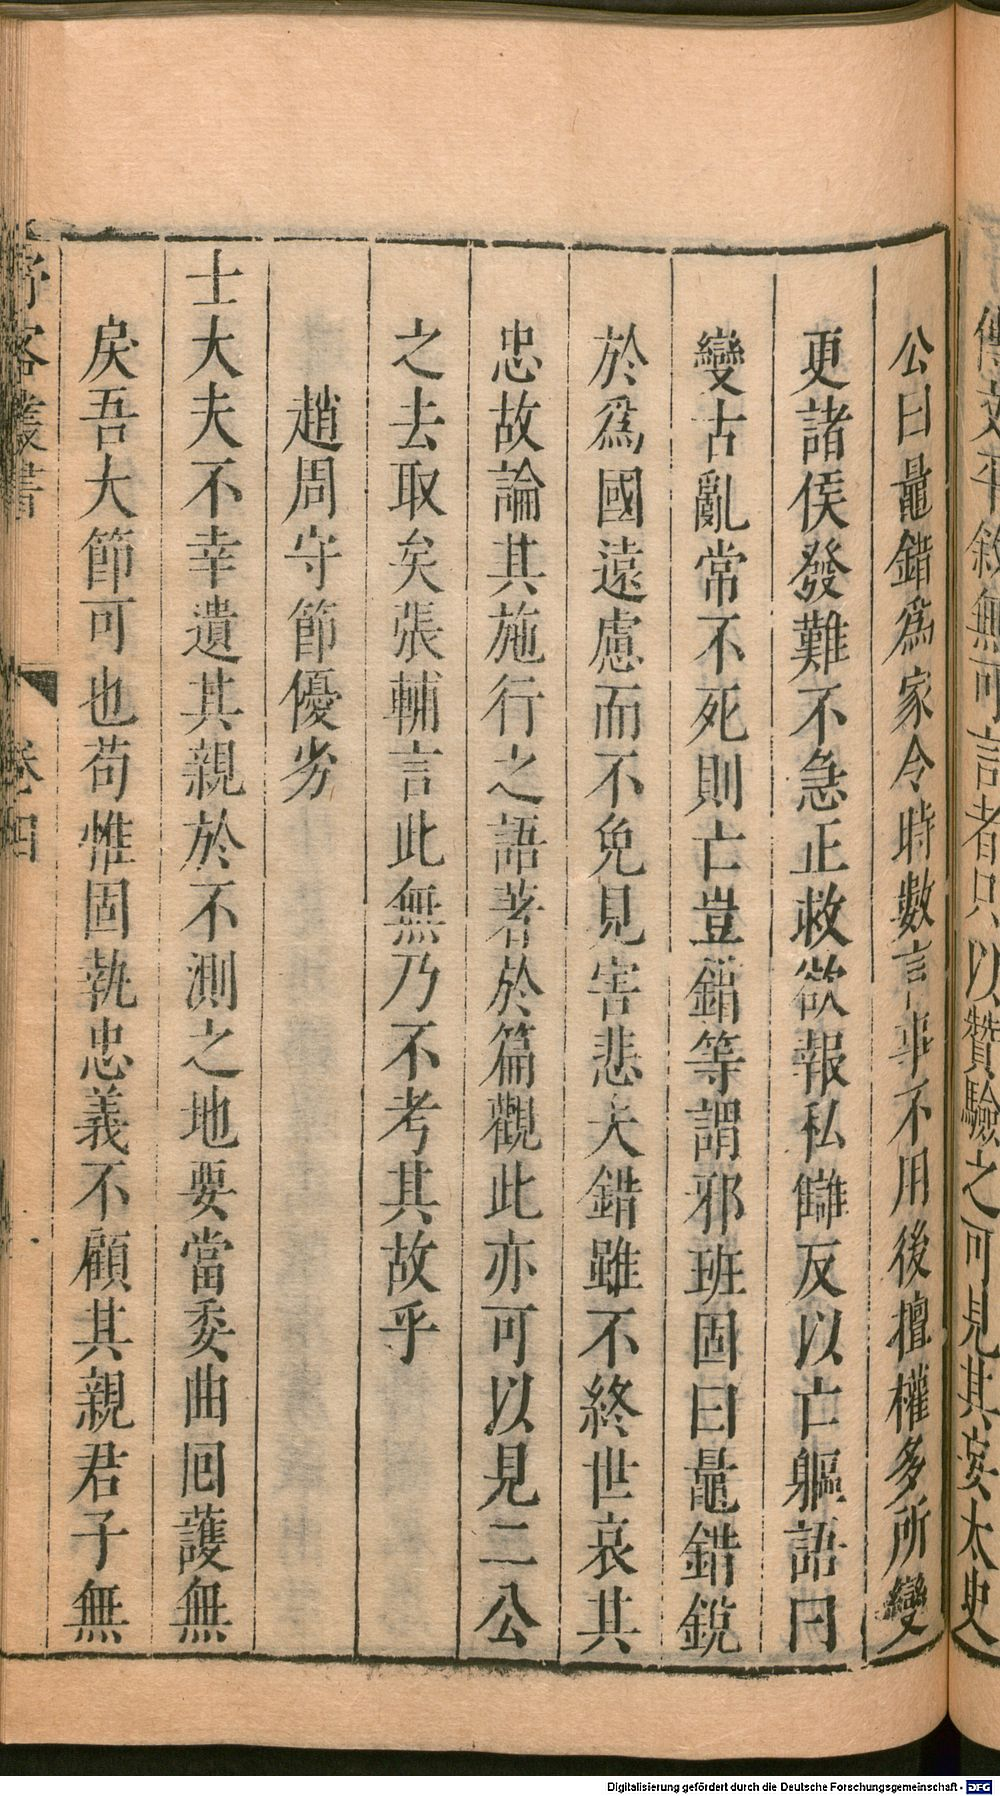 傳文平敘無可言者只以贊驗之可見其妄太史
公曰鼂錯爲家令時數言事不用後擅權多所變
更諸侯發難不急正救欲報私讎反以亡軀語曰
變古亂常不死則亡豈錯等謂邪班固曰鼂錯銳
於爲國遠慮而不免見害悲夫錯雖不終世哀其
忠故論其施行之語著於篇觀此亦可以見二公
之去取矣張輔言此無乃不考其故乎
趙周守節優劣
士大夫不幸遺其親於不測之地要當委曲囘護無
戾吾大節可也苟惟固執忠義不顧其親君子無
野客叢書 卷四
Digitalisierung gefördert durch die Deutsche Forschungsgemeinschaft - DFG